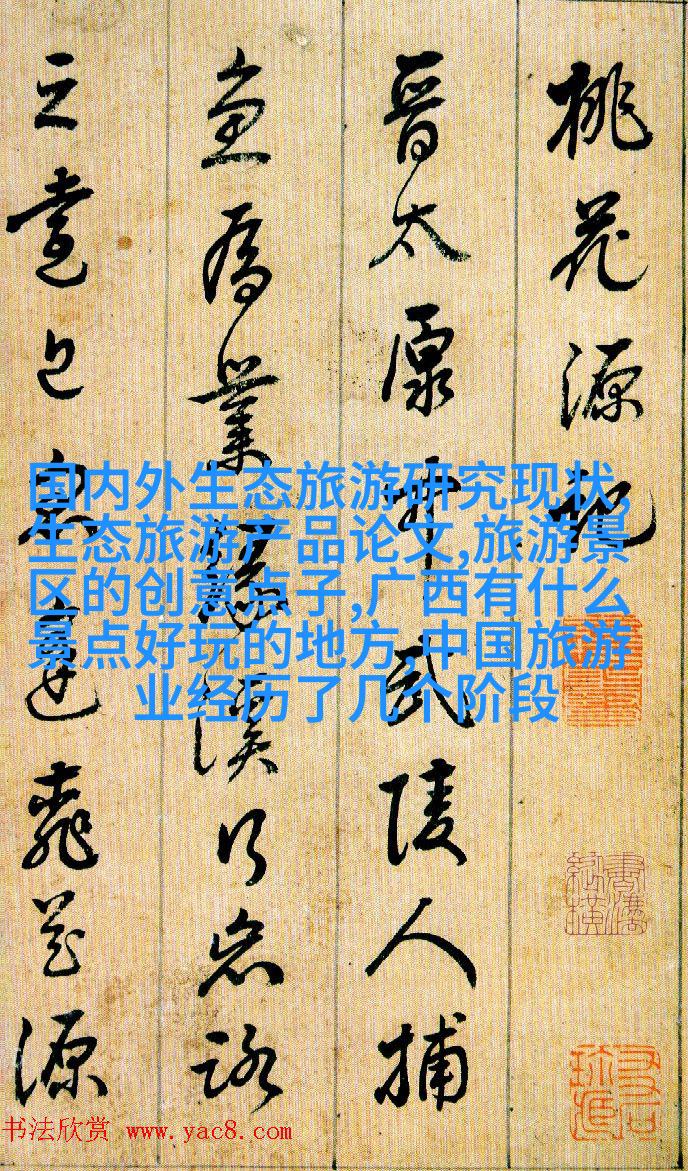 桃花源記
晉太原中武陵人捕
魚為業緣溪行忘路
之
源
国内外生态旅游研究现状,
生态旅游产品论文,旅游景
区的创意点子,广西有什么
景点好玩的地方,中国旅游
业经历了几个阶段
书法欣赏 www.yac8.com